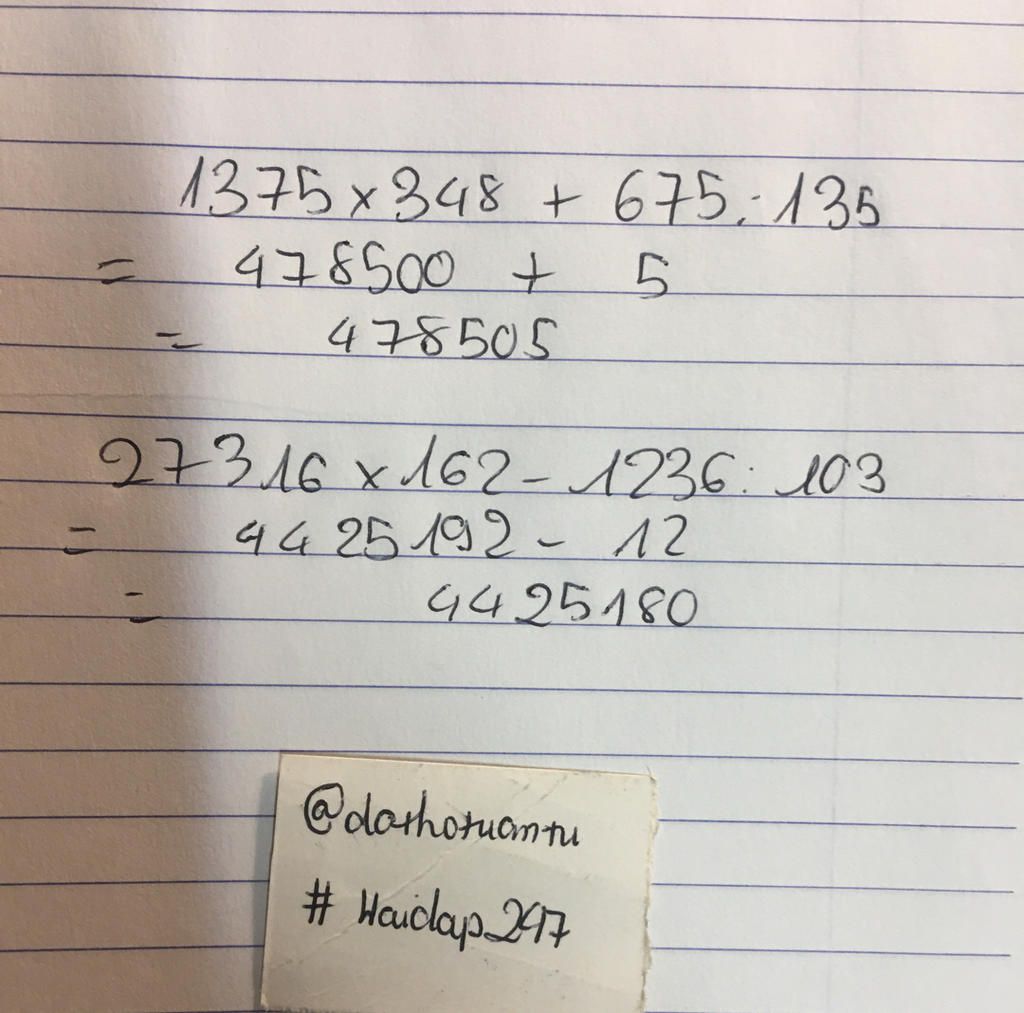 1375 x 348 + 675 : 135
= 478500 + 5
= 478505
27316 x 162 - 1236 : 103
= 4425192 - 12
= 4425180
@dathotuantu
# Haidap_247